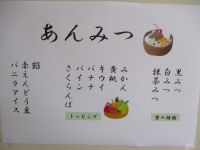 あんみつ
黒みつ
白みつ
抹茶みつ
蜜の種類
みかん
黄桃
キウイ
バナナ
パイン
さくらんぼ
トッピング
餡
赤えんどう豆
バニラアイス